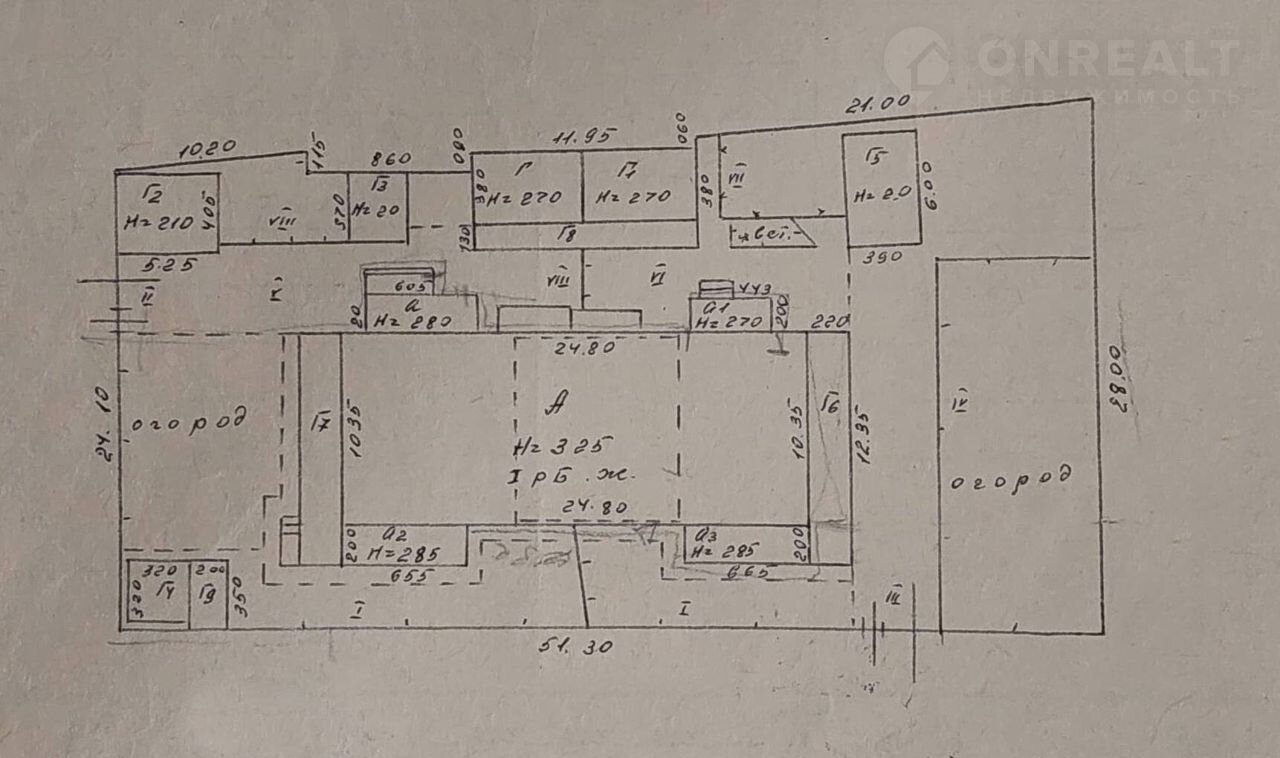 ONREALT
НЕДВИЖИМОСТЬ
21.00
10.20
115
860
060
11.95
060
Г2
H=210
405
VIII
570
Г3
H=20
380
Г
H=270
Г1
H=270
380
VII
Г5
H=20
6.00
130
Г8
цвет.
5.25
390
II
V
605
VIII
VI
443
20
а
H=280
а1
H=270
200
220
24.80
24.10
огород
Г7
1035
А
H=325
I рБ.ж.
24.80
10.35
Г6
12.35
IV
огород
38.00
200
а2
H=285
655
а3
H=285
200
665
320
320
Г4
200
Г9
350
I
I
III
51.30